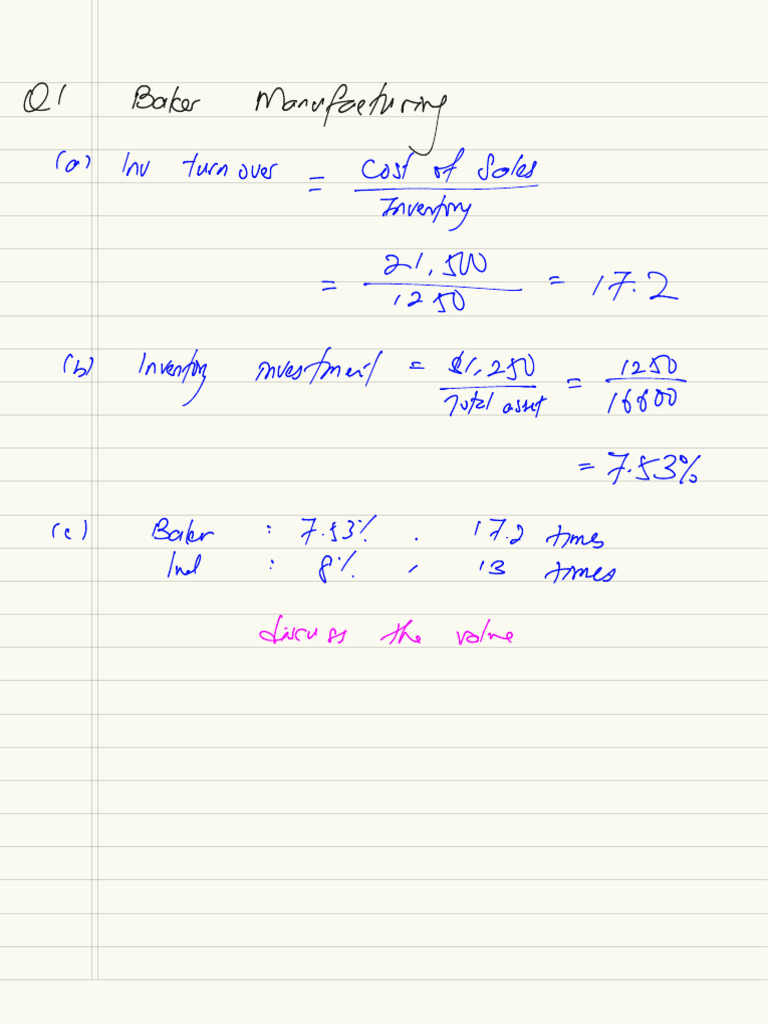 Q1 Baker Manufacturing
(a) Inv turn over = Cost of Sales / Inventory
= 21,500 / 1250 = 17.2
(b) Inventory investment = $1,250 / Total asset = 1250 / 16600
= 7.53%
(c) Baker : 7.53% . 17.2 times
Ind : 8% , 13 times
discuss the value